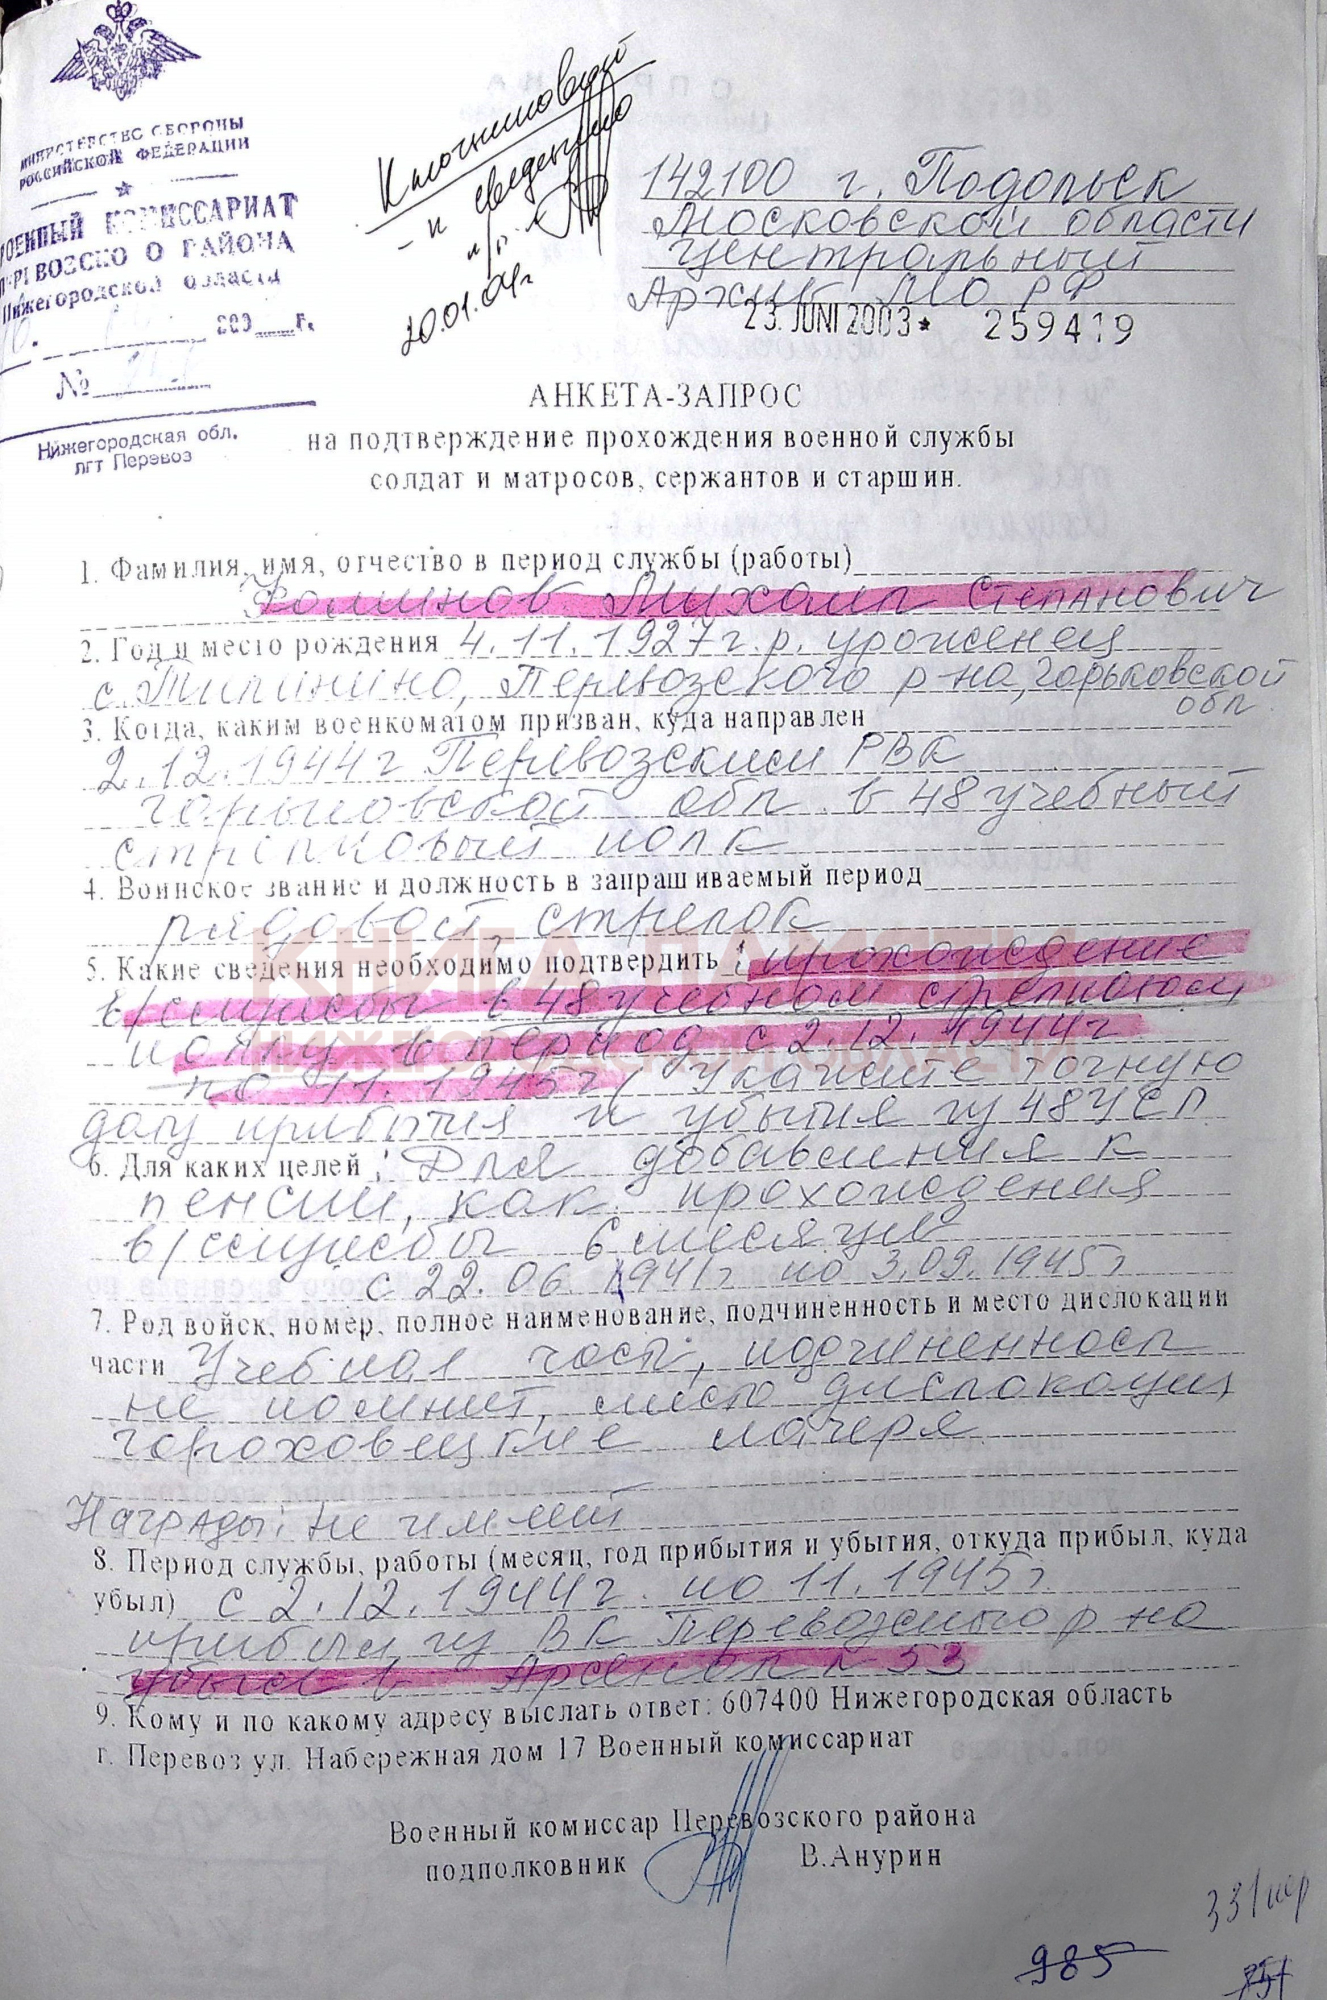 МИНИСТЕРСТВО ОБОРОНЫ
РОССИЙСКОЙ ФЕДЕРАЦИИ
ВОЕННЫЙ КОМИССАРИАТ
ПЕРЕВОЗСКОГО РАЙОНА
Нижегородской области
200 г.
№
Нижегородская обл.
пгт Перевоз
к сведению
20.01.04г
142100 г. Подольск
Московской области
Центральный
Архив МО РФ
23. JUNI 2003* 259419
АНКЕТА-ЗАПРОС
на подтверждение прохождения военной службы
солдат и матросов, сержантов и старшин.
1. Фамилия, имя, отчество в период службы (работы)
Фоминов Михаил Степанович
2. Год и место рождения 4.11.1927г.р. уроженец
с. Тилинино, Перевозского р-на, Горьковской
обл.
3. Когда, каким военкоматом призван, куда направлен
2.12.1944г Перевозским РВК
Горьковской обл. в 48 учебный
стрелковый полк
4. Воинское звание и должность в запрашиваемый период
рядовой, стрелок
КНИГА ПАМЯТИ
5. Какие сведения необходимо подтвердить: прохождение
в/службы в 48 учебном стрелковом
НИЖЕГОРОДСКОЙ ОБЛАСТИ
полку в период с 2.12.1944г
по 11.1945г, укажите точную
дату прибытия и убытия из 48 УСП
6. Для каких целей: Для добавления к
пенсии, как прохождения
в/службы 6 месяцев
с 22.06.1941г по 3.09.1945г
7. Род войск, номер, полное наименование, подчиненность и место дислокации
части Учебная часть, подчиненность
не помнит, место дислокации
Гороховецкие лагеря
Награды: не имеет
8. Период службы, работы (месяц, год прибытия и убытия, откуда прибыл, куда
убыл) с 2.12.1944г. по 11.1945г
прибыл из ВК Перевозского р-на
убыл в Арсенал № 53
9. Кому и по какому адресу выслать ответ: 607400 Нижегородская область
г. Перевоз ул. Набережная дом 17 Военный комиссариат
Военный комиссар Перевозского района
подполковник В.Анурин
331пер
985